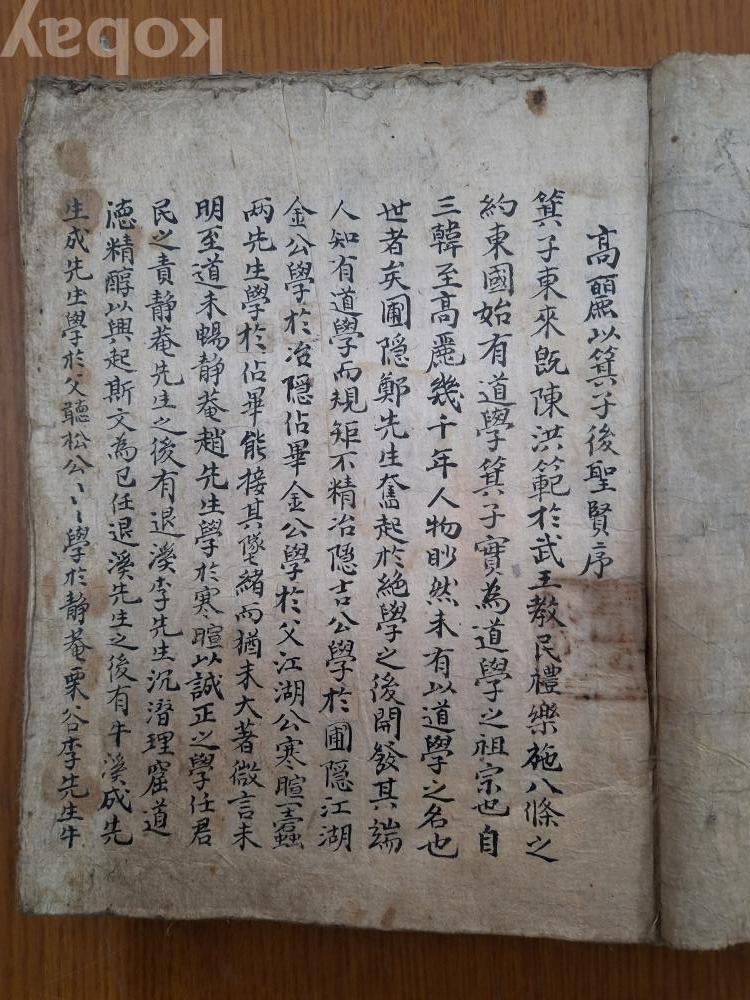 kobay
高麗以箕子後聖賢序
箕子東來旣陳洪範於武王教民禮樂施八條之
約東國始有道學箕子實為道學之祖宗也自
三韓至高麗幾千年人物眇然未有以道學之名也
世者矣圃隱鄭先生奮起於絶學之後開發其端
人知有道學而規矩不精冶隱吉公學於圃隱江湖
金公學於冶隱佔畢金公學於父江湖公寒暄一蠹
两先生學於佔畢能接其墜緖而猶未大著微言未
明至道未暢静菴趙先生學於寒暄以誠正之學任君
民之責静菴先生之後有退溪李先生沉潛理窟道
德精醇以興起斯文為己任退溪先生之後有牛溪成先
生成先生學於父聽松公〻〻學於静菴栗谷李先生牛